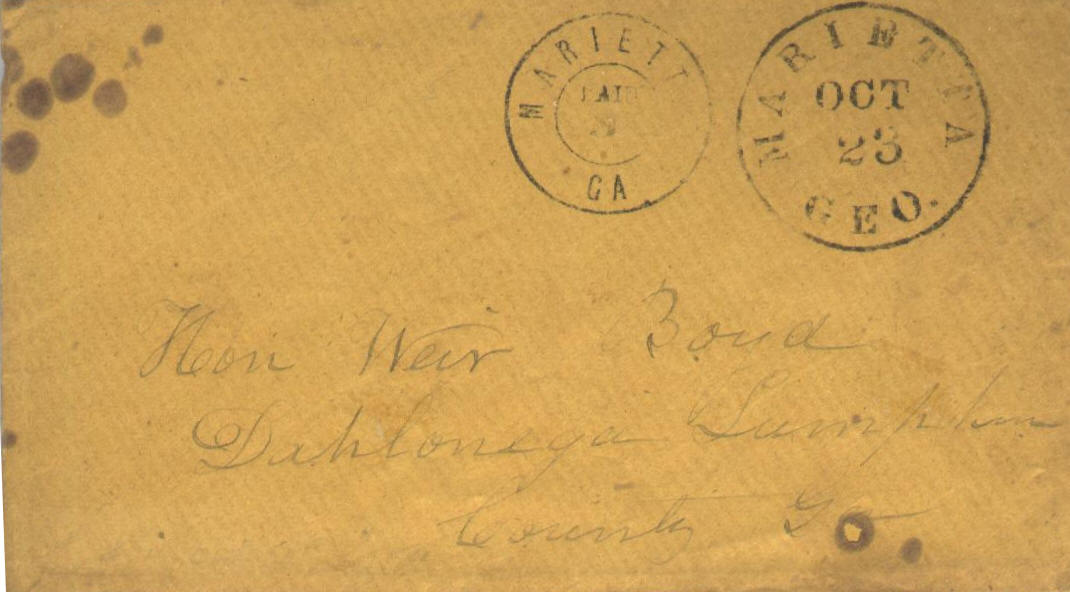 MARIETT
PAID
GA
MARIETTA
OCT
23
GEO.
Hon Weir Boyd
Dahlonega Lumpkin
County Ga